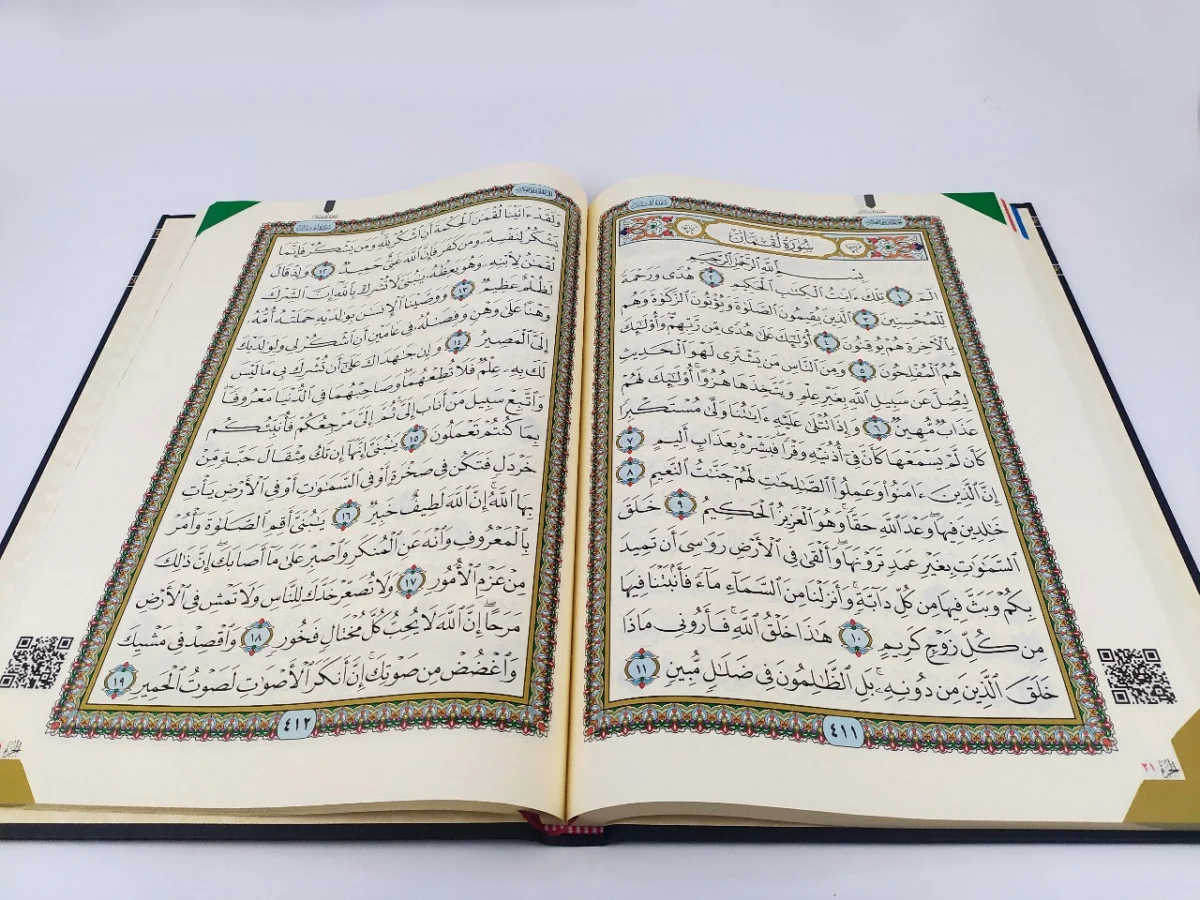 سُورَةُ لُقْمَانَ
بِسْمِ ٱللَّهِ ٱلرَّحْمَٰنِ ٱلرَّحِيمِ
الٓمٓ ١ تِلْكَ ءَايَٰتُ ٱلْكِتَٰبِ ٱلْحَكِيمِ ٢ هُدًى وَرَحْمَةً
لِّلْمُحْسِنِينَ ٣ ٱلَّذِينَ يُقِيمُونَ ٱلصَّلَوٰةَ وَيُؤْتُونَ ٱلزَّكَوٰةَ وَهُم
بِٱلْأَخِرَةِ هُمْ يُوقِنُونَ ٤ أُو۟لَٰٓئِكَ عَلَىٰ هُدًى مِّن رَّبِّهِمْ وَأُو۟لَٰٓئِكَ
هُمُ ٱلْمُفْلِحُونَ ٥ وَمِنَ ٱلنَّاسِ مَن يَشْتَرِى لَهْوَ ٱلْحَدِيثِ
لِيُضِلَّ عَن سَبِيلِ ٱللَّهِ بِغَيْرِ عِلْمٍ وَيَتَّخِذَهَا هُزُوًا أُو۟لَٰٓئِكَ لَهُمْ
عَذَابٌ مُّهِينٌ ٦ وَإِذَا تُتْلَىٰ عَلَيْهِ ءَايَٰتُنَا وَلَّىٰ مُسْتَكْبِرًا
كَأَن لَّمْ يَسْمَعْهَا كَأَنَّ فِىٓ أُذُنَيْهِ وَقْرًا فَبَشِّرْهُ بِعَذَابٍ أَلِيمٍ ٧
إِنَّ ٱلَّذِينَ ءَامَنُوا۟ وَعَمِلُوا۟ ٱلصَّٰلِحَٰتِ لَهُمْ جَنَّٰتُ ٱلنَّعِيمِ ٨
خَٰلِدِينَ فِيهَا وَعْدَ ٱللَّهِ حَقًّا وَهُوَ ٱلْعَزِيزُ ٱلْحَكِيمُ ٩ خَلَقَ
ٱلسَّمَٰوَٰتِ بِغَيْرِ عَمَدٍ تَرَوْنَهَا وَأَلْقَىٰ فِى ٱلْأَرْضِ رَوَٰسِىَ أَن تَمِيدَ
بِكُمْ وَبَثَّ فِيهَا مِن كُلِّ دَآبَّةٍ وَأَنزَلْنَا مِنَ ٱلسَّمَآءِ مَآءً فَأَنۢبَتْنَا فِيهَا
مِن كُلِّ زَوْجٍ كَرِيمٍ ١٠ هَٰذَا خَلْقُ ٱللَّهِ فَأَرُونِى مَاذَا
خَلَقَ ٱلَّذِينَ مِن دُونِهِۦ بَلِ ٱلظَّٰلِمُونَ فِى ضَلَٰلٍ مُّبِينٍ ١١
٤١١
الجزء ٢١
وَلَقَدْ ءَاتَيْنَا لُقْمَٰنَ ٱلْحِكْمَةَ أَنِ ٱشْكُرْ لِلَّهِ وَمَن يَشْكُرْ فَإِنَّمَا
يَشْكُرُ لِنَفْسِهِۦ وَمَن كَفَرَ فَإِنَّ ٱللَّهَ غَنِىٌّ حَمِيدٌ ١٢ وَإِذْ قَالَ
لُقْمَٰنُ لِٱبْنِهِۦ وَهُوَ يَعِظُهُۥ يَٰبُنَىَّ لَا تُشْرِكْ بِٱللَّهِ إِنَّ ٱلشِّرْكَ
لَظُلْمٌ عَظِيمٌ ١٣ وَوَصَّيْنَا ٱلْإِنسَٰنَ بِوَٰلِدَيْهِ حَمَلَتْهُ أُمُّهُۥ
وَهْنًا عَلَىٰ وَهْنٍ وَفِصَٰلُهُۥ فِى عَامَيْنِ أَنِ ٱشْكُرْ لِى وَلِوَٰلِدَيْكَ
إِلَىَّ ٱلْمَصِيرُ ١٤ وَإِن جَٰهَدَاكَ عَلَىٰٓ أَن تُشْرِكَ بِى مَا لَيْسَ
لَكَ بِهِۦ عِلْمٌ فَلَا تُطِعْهُمَا وَصَاحِبْهُمَا فِى ٱلدُّنْيَا مَعْرُوفًا
وَٱتَّبِعْ سَبِيلَ مَنْ أَنَابَ إِلَىَّ ثُمَّ إِلَىَّ مَرْجِعُكُمْ فَأُنَبِّئُكُم
بِمَا كُنتُمْ تَعْمَلُونَ ١٥ يَٰبُنَىَّ إِنَّهَآ إِن تَكُ مِثْقَالَ حَبَّةٍ مِّنْ
خَرْدَلٍ فَتَكُن فِى صَخْرَةٍ أَوْ فِى ٱلسَّمَٰوَٰتِ أَوْ فِى ٱلْأَرْضِ يَأْتِ
بِهَا ٱللَّهُ إِنَّ ٱللَّهَ لَطِيفٌ خَبِيرٌ ١٦ يَٰبُنَىَّ أَقِمِ ٱلصَّلَوٰةَ وَأْمُرْ
بِٱلْمَعْرُوفِ وَٱنْهَ عَنِ ٱلْمُنكَرِ وَٱصْبِرْ عَلَىٰ مَآ أَصَابَكَ إِنَّ ذَٰلِكَ
مِنْ عَزْمِ ٱلْأُمُورِ ١٧ وَلَا تُصَعِّرْ خَدَّكَ لِلنَّاسِ وَلَا تَمْشِ فِى ٱلْأَرْضِ
مَرَحًا إِنَّ ٱللَّهَ لَا يُحِبُّ كُلَّ مُخْتَالٍ فَخُورٍ ١٨ وَٱقْصِدْ فِى مَشْيِكَ
وَٱغْضُضْ مِن صَوْتِكَ إِنَّ أَنكَرَ ٱلْأَصْوَٰتِ لَصَوْتُ ٱلْحَمِيرِ ١٩
٤١٢
الجزء